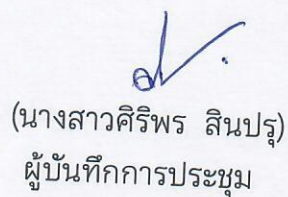 (นางสาวศิริพร สินปรุ)
ผู้บันทึกการประชุม